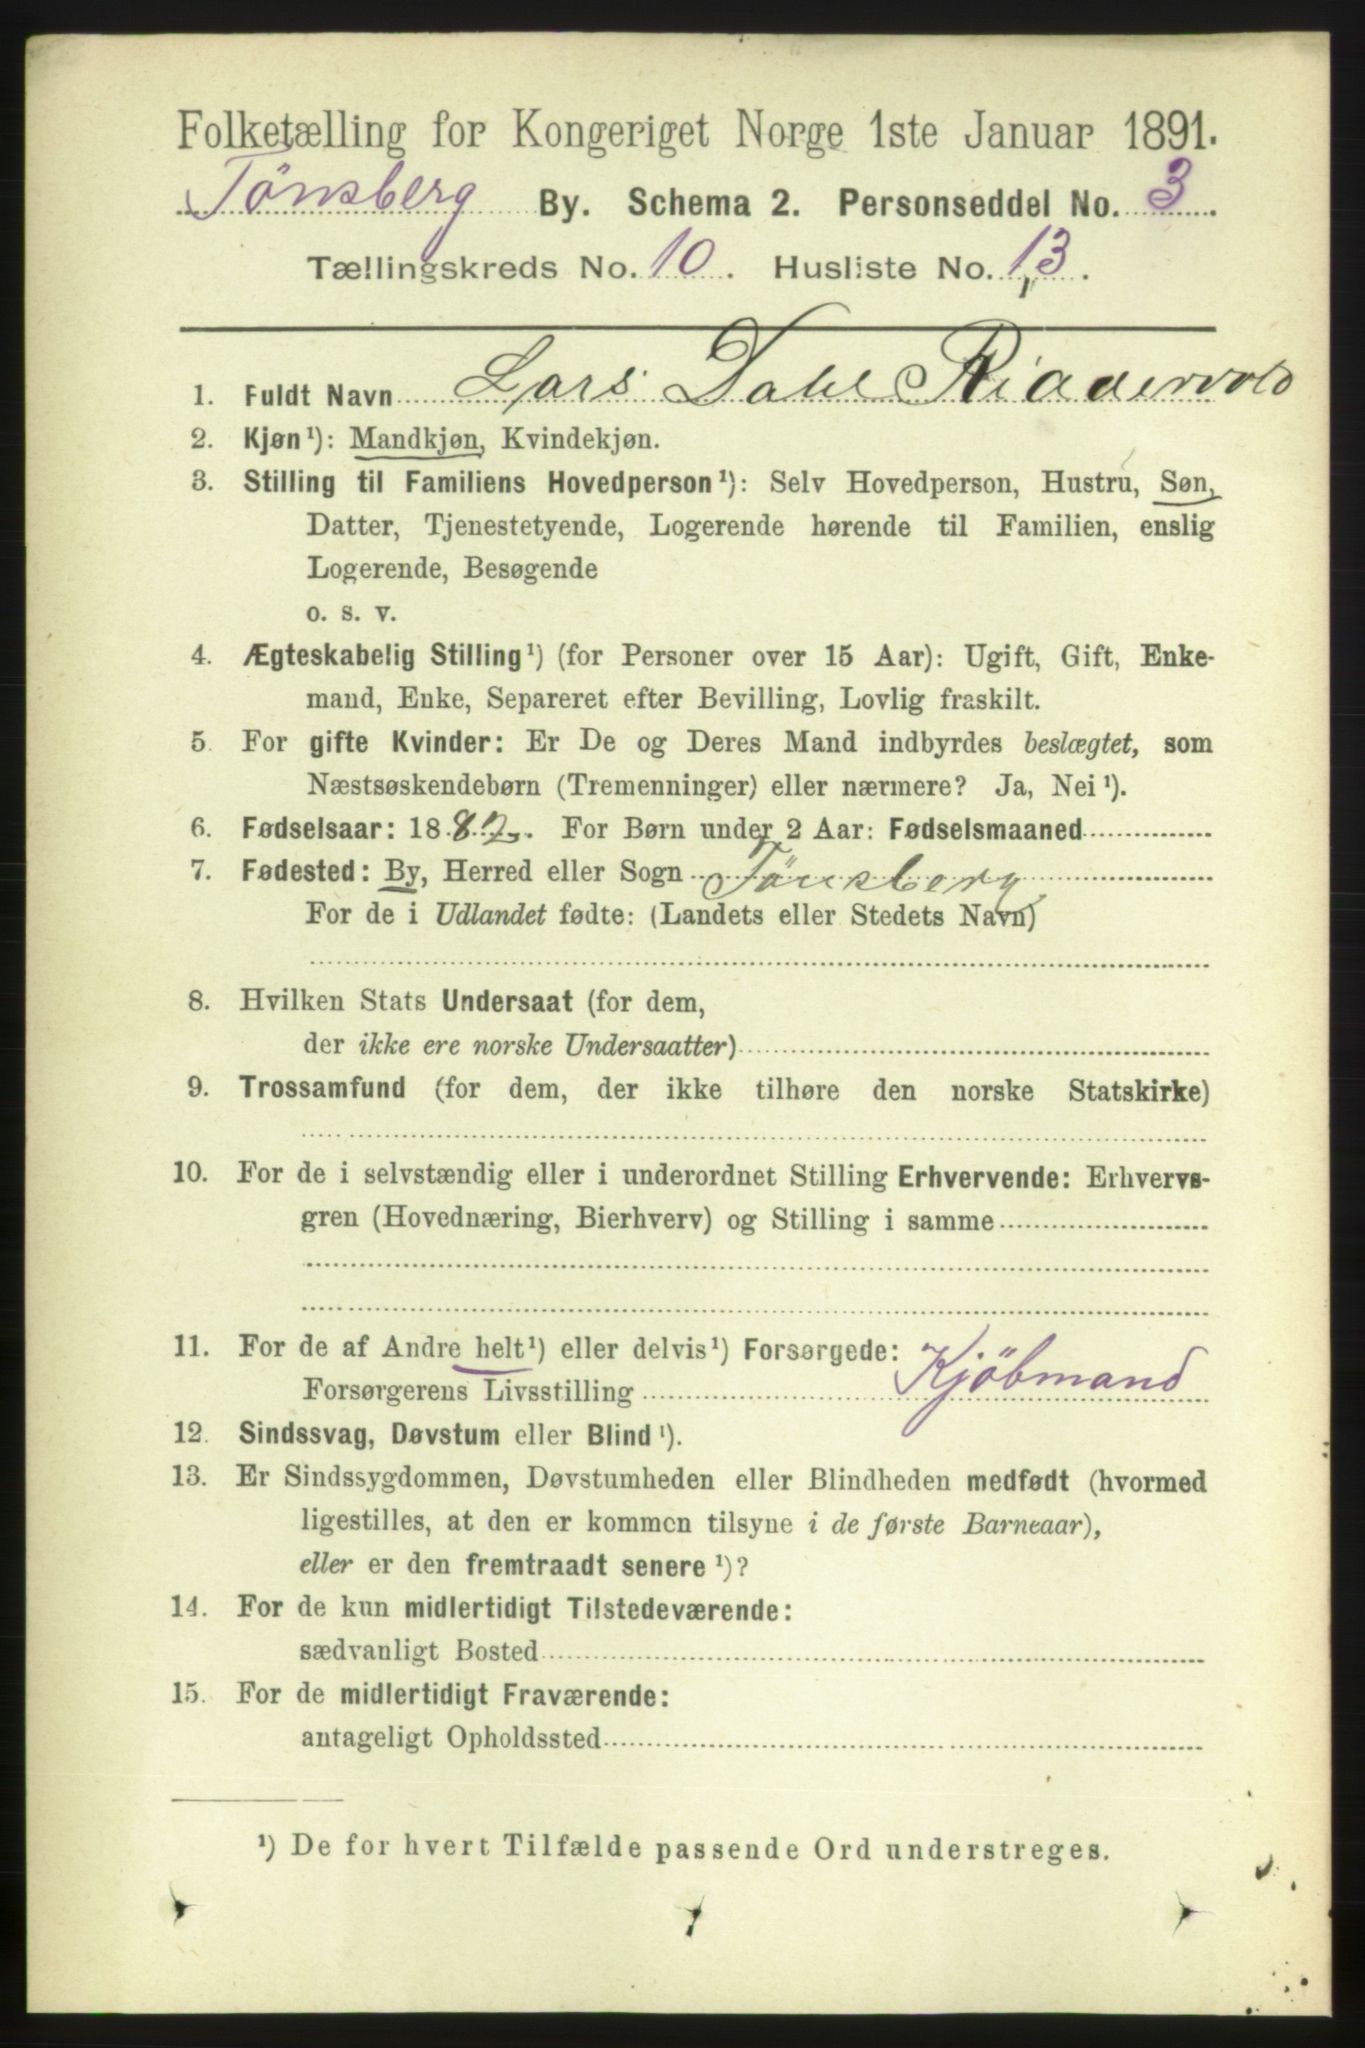 Folketælling for Kongeriget Norge 1ste Januar 1891.
Tönsberg By. Schema 2. Personseddel No. 3.
Tællingskreds No. 10. Husliste No. 13.
1. Fuldt Navn Lars Dahl Riddervold
2. Kjøn¹): Mandkjøn, Kvindekjøn.
3. Stilling til Familiens Hovedperson¹): Selv Hovedperson, Hustru, Søn,
Datter, Tjenestetyende, Logerende hørende til Familien, enslig
Logerende, Besøgende
o. s. v.
4. Ægteskabelig Stilling¹) (for Personer over 15 Aar): Ugift, Gift, Enke-
mand, Enke, Separeret efter Bevilling, Lovlig fraskilt.
5. For gifte Kvinder: Er De og Deres Mand indbyrdes beslægtet, som
Næstsøskendebørn (Tremenninger) eller nærmere? Ja, Nei¹).
6. Fødselsaar: 1882. For Børn under 2 Aar: Fødselsmaaned
7. Fødested: By, Herred eller Sogn Tönsberg
For de i Udlandet fødte: (Landets eller Stedets Navn)
8. Hvilken Stats Undersaat (for dem,
der ikke ere norske Undersaatter)
9. Trossamfund (for dem, der ikke tilhøre den norske Statskirke)
10. For de i selvstændig eller i underordnet Stilling Erhvervende: Erhvervs-
gren (Hovednæring, Bierhverv) og Stilling i samme
11. For de af Andre helt¹) eller delvis¹) Forsørgede:
Forsørgerens Livsstilling Kjöbmand
12. Sindssvag, Døvstum eller Blind¹).
13. Er Sindssygdommen, Døvstumheden eller Blindheden medfødt (hvormed
ligestilles, at den er kommen tilsyne i de første Barneaar),
eller er den fremtraadt senere¹)?
14. For de kun midlertidigt Tilstedeværende:
sædvanligt Bosted
15. For de midlertidigt Fraværende:
antageligt Opholdssted
¹) De for hvert Tilfælde passende Ord understreges.